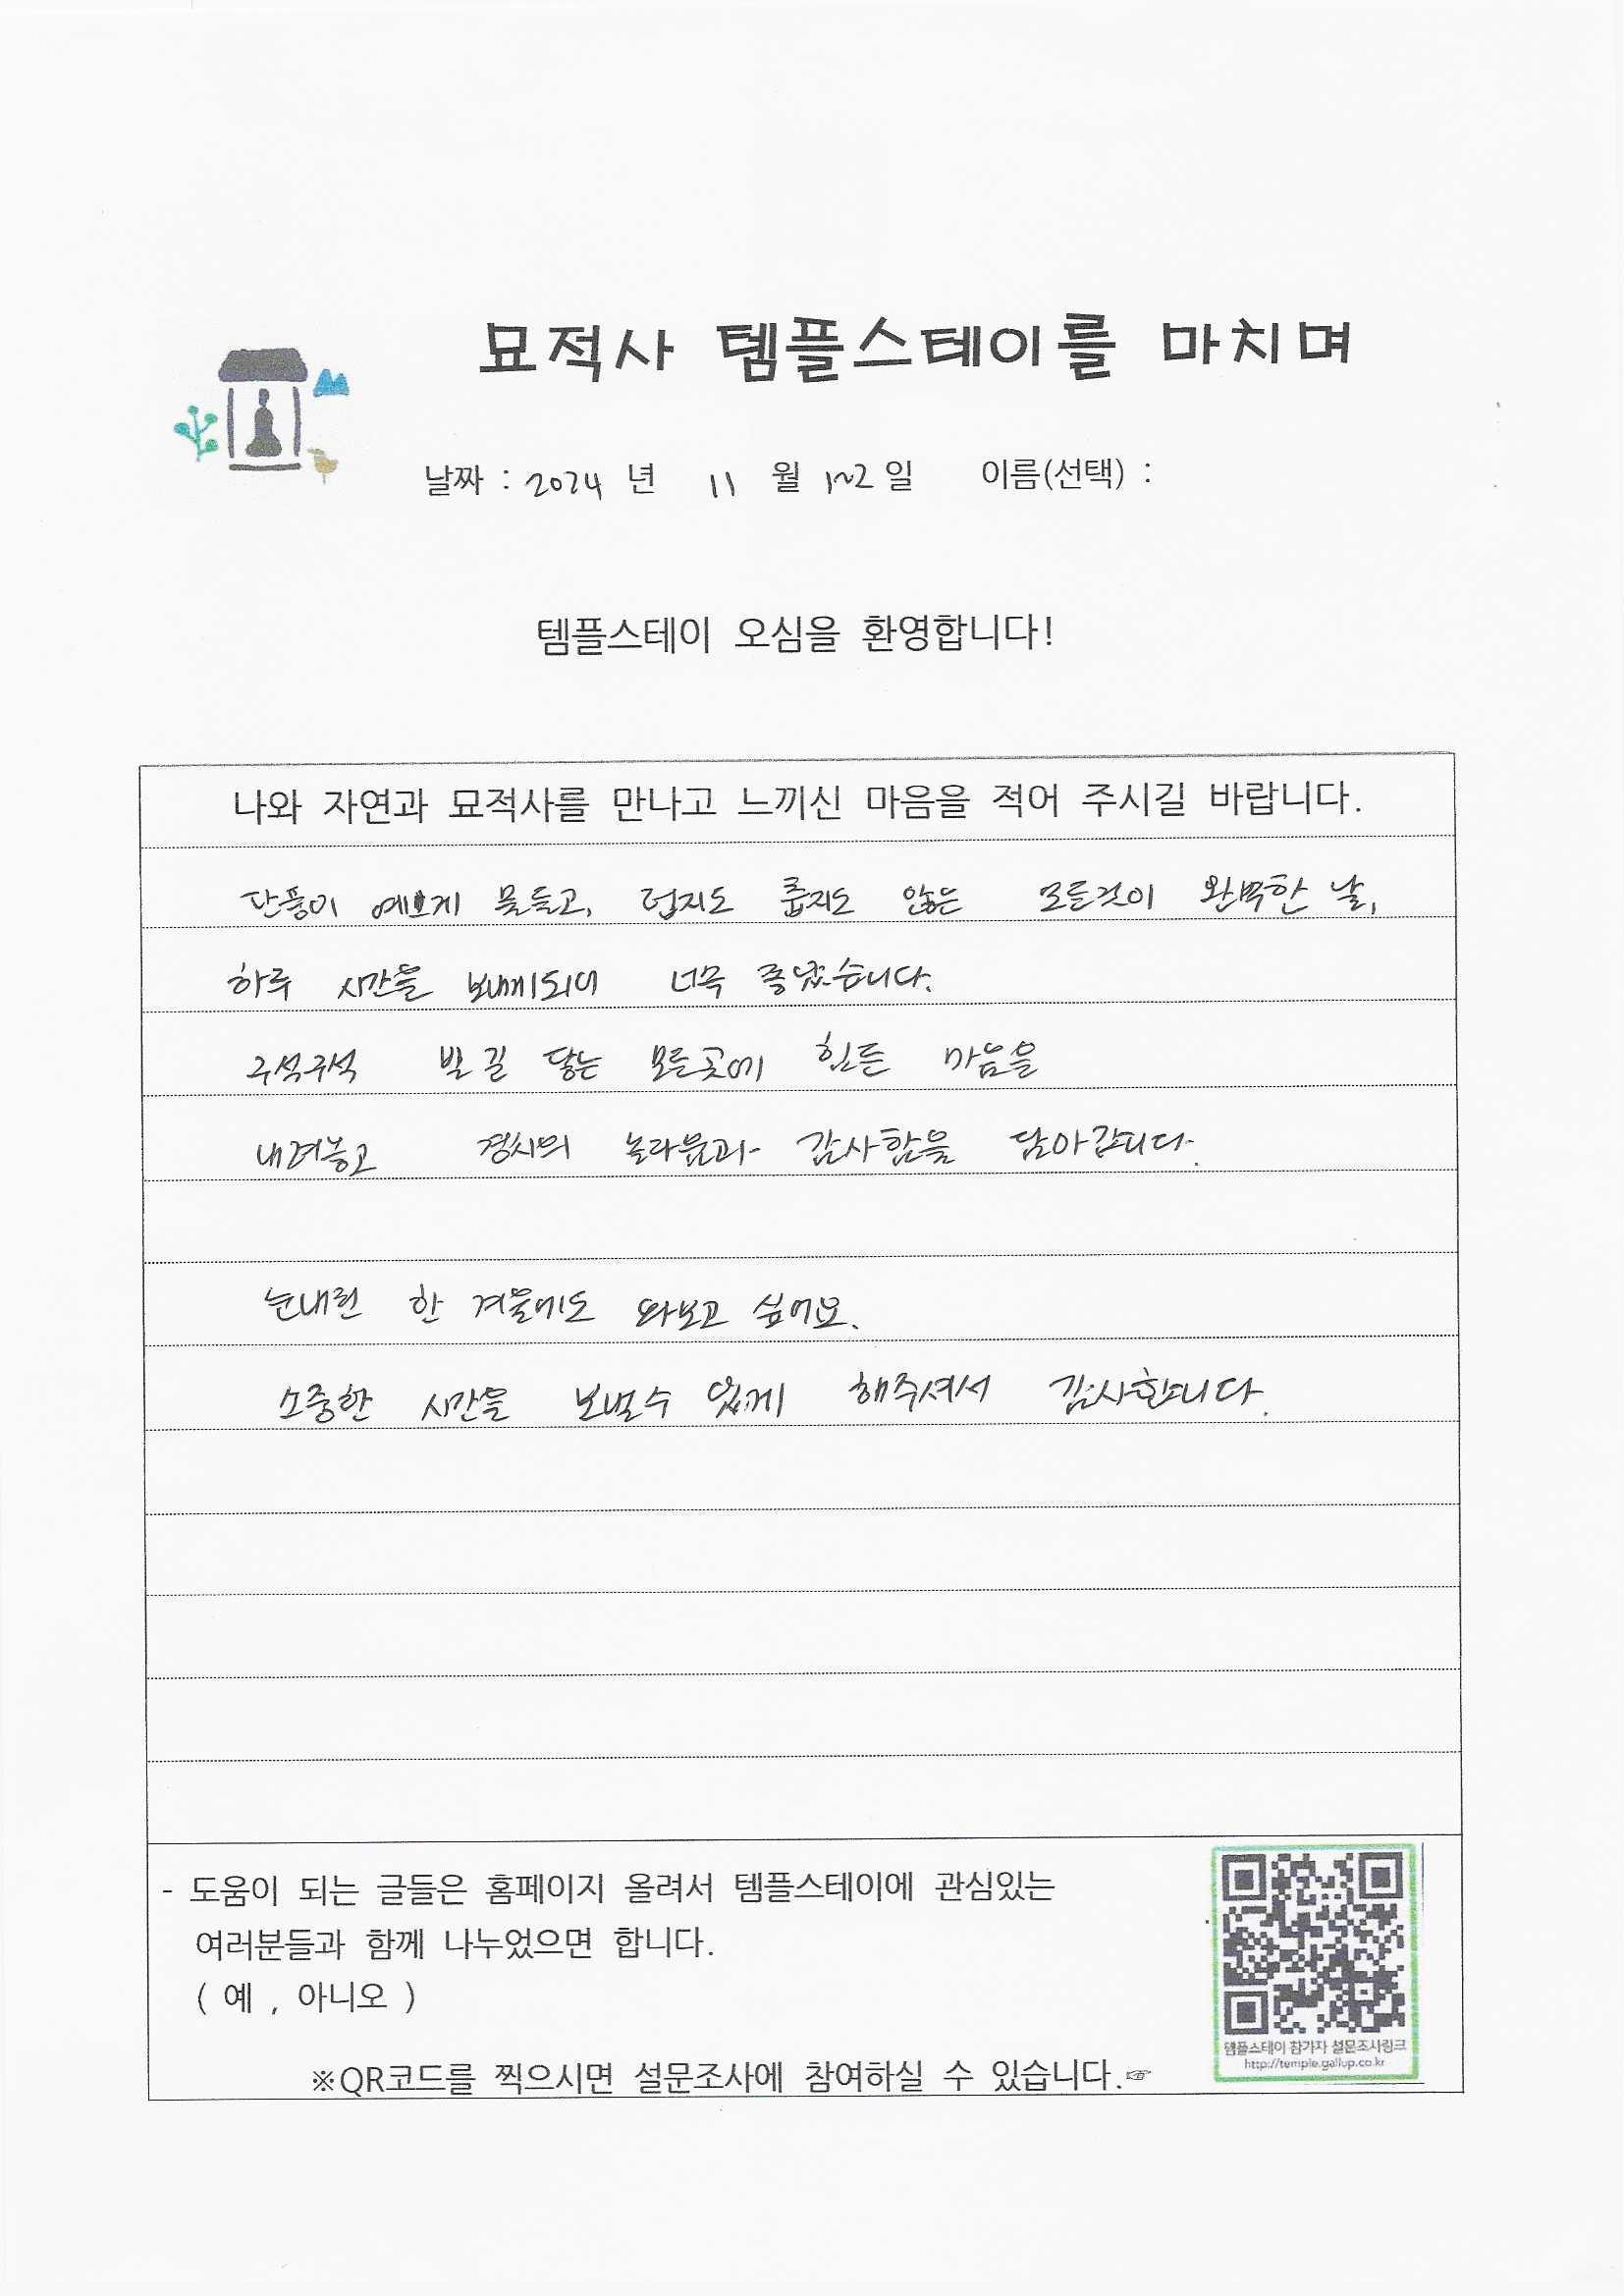 묘적사 템플스테이를 마치며
날짜 : 2024 년 11 월 1~2 일 이름(선택) :
템플스테이 오심을 환영합니다!
나와 자연과 묘적사를 만나고 느끼신 마음을 적어 주시길 바랍니다.
단풍이 예쁘게 물들고, 덥지도 춥지도 않은 모든것이 완벽한 날,
하루 시간을 보내게되어 너무 좋았습니다.
구석구석 발길 닿는 모든곳에 힘든 마음을
내려놓고 경치의 놀라움과 감사함을 담아갑니다.
눈내린 한 겨울에도 와보고 싶어요.
소중한 시간을 보낼수 있게 해주셔서 감사합니다.
- 도움이 되는 글들은 홈페이지 올려서 템플스테이에 관심있는
여러분들과 함께 나누었으면 합니다.
( 예 , 아니오 )
※QR코드를 찍으시면 설문조사에 참여하실 수 있습니다.☞
템플스테이 참가자 설문조사링크
http://temple.gallup.co.kr